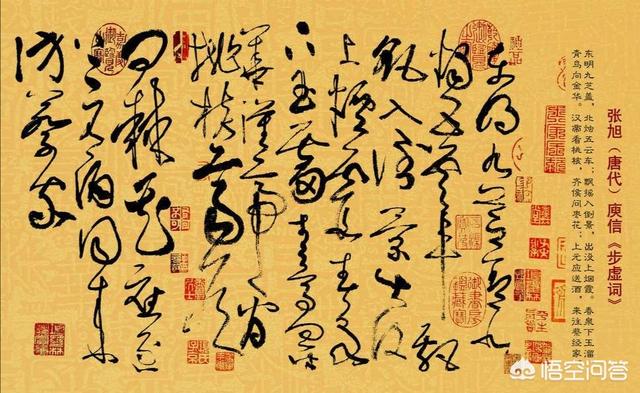 张旭（唐代）庾信《步虚词》
东明九芝盖，北烛五云车；飘摇入倒景，出没上烟霞。春泉下玉溜
青鸟向金华。汉帝看桃核，齐侯问枣花；上元应送酒，来往蔡经家
東明九芝蓋北
燭五雲車飄
飖入倒景出没
上煙霞春泉
下玉霤青鳥向金
華漢帝看
桃核齊侯
問棘花應逐
上元酒同來
訪蔡家
悟空问答